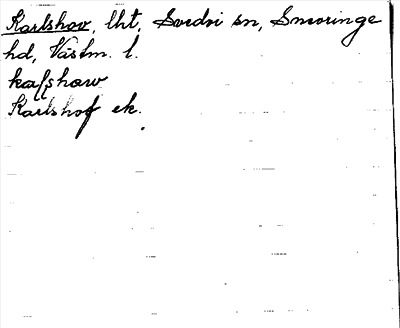 Karlshov, lht, Svedvi sn, Snevringe
hd, Västm. l.
kaſshωv
Karlshof ek.